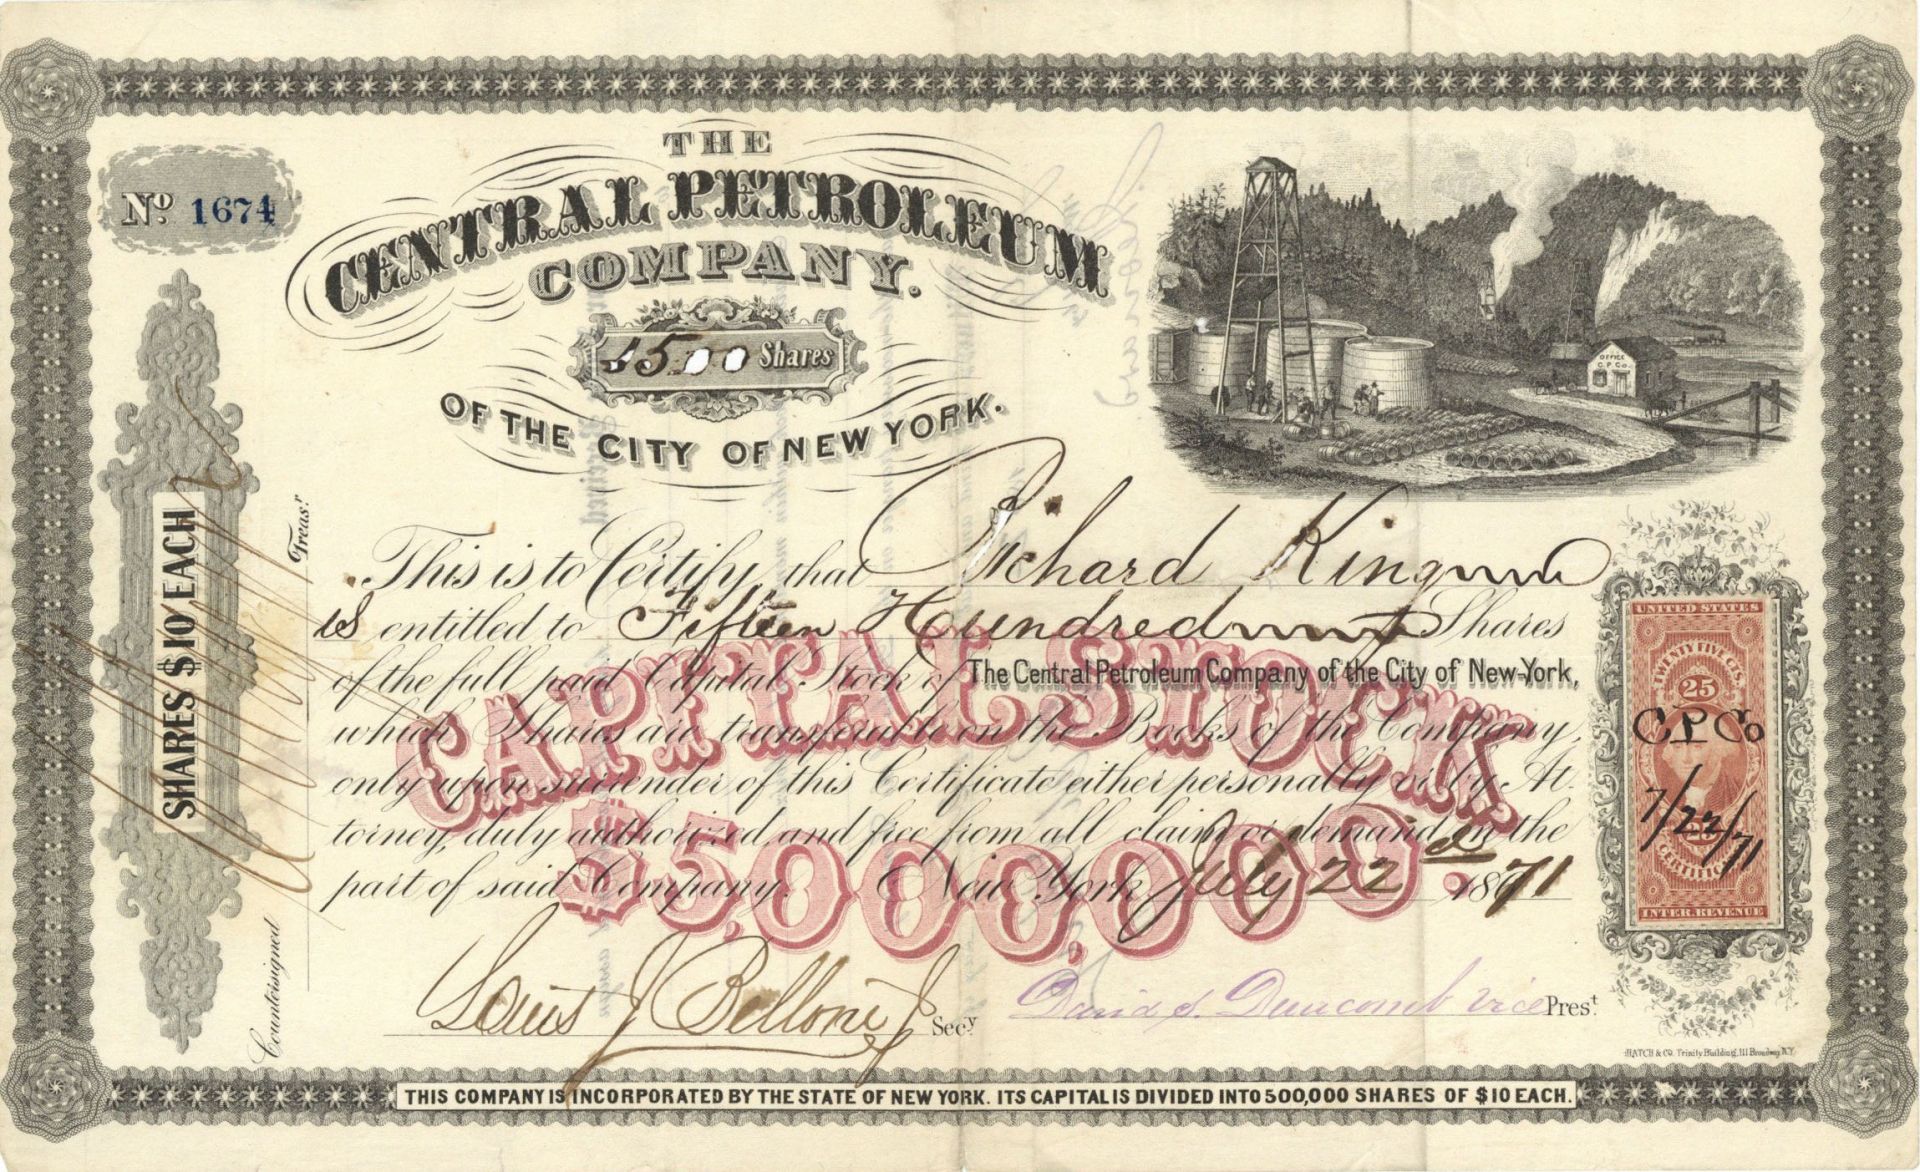 No 1674
THE
CENTRAL PETROLEUM
COMPANY.
1500 Shares
OF THE CITY OF NEW YORK.
OFFICE
C.P.Co.
SHARES $10 EACH
Countersigned
Treasr
This is to Certify that Richard King
is entitled to Fifteen Hundred Shares
of the full paid Capital Stock of The Central Petroleum Company of the City of New-York,
which Shares are transferable on the Books of the Company,
only upon surrender of this Certificate either personally or by At-
torney, duly authorized and free from all claim or demand on the
part of said Company. New York July 22d 1871
CAPITAL STOCK
$5,000,000.
UNITED STATES
TWENTY FIVE CTS.
25
C P Co
7/22/71
25
CERTIFICATE
INTER. REVENUE
Louis J Belloni Jr Secy
David S. Duncomb Vice Prest
HATCH & Co. Trinity Building, 111 Broadway N.Y.
THIS COMPANY IS INCORPORATED BY THE STATE OF NEW YORK. ITS CAPITAL IS DIVIDED INTO 500,000 SHARES OF $10 EACH.